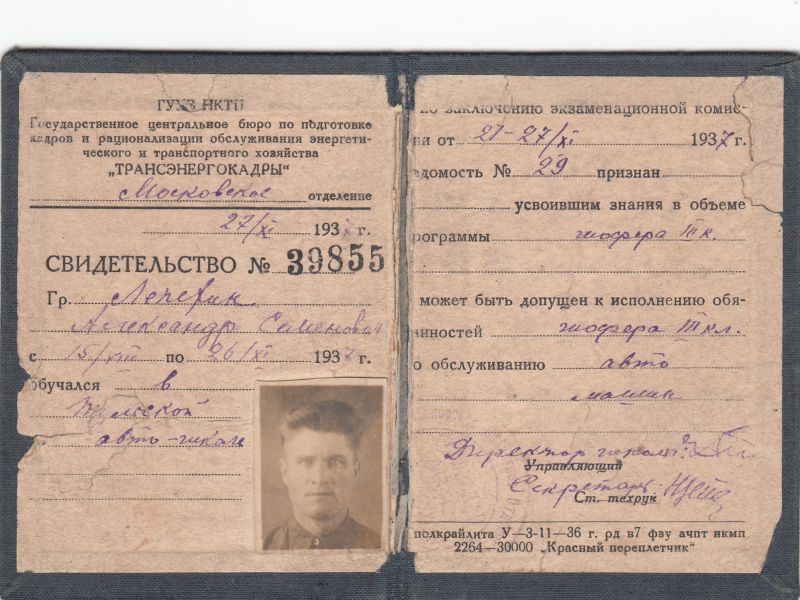 ГУУЗ НКТП
Государственное центральное бюро по подготовке
кадров и рационализации обслуживания энергети-
ческого и транспортного хозяйства
„ТРАНСЭНЕРГОКАДРЫ“
Московское отделение
27/XI 1937 г.
СВИДЕТЕЛЬСТВО № 39855
Гр. Лепехин
Александр Семенович
с 15/VIII по 26/XI 1937 г.
обучался в
Тульской
авто-школе
по заключению экзаменационной комис-
сии от 21-27/XI 1937 г.
едомость № 29 признан
усвоившим знания в объеме
рограммы шофера III к.
может быть допущен к исполнению обя-
нностей шофера III кл.
о обслуживанию авто
машин
Директор школы:
Управляющий
Секретарь:
Ст. техрук
полкрайлита У—3-11—36 г. рд в7 фзу ачпт нкмп
2264—30000 „Красный переплетчик“